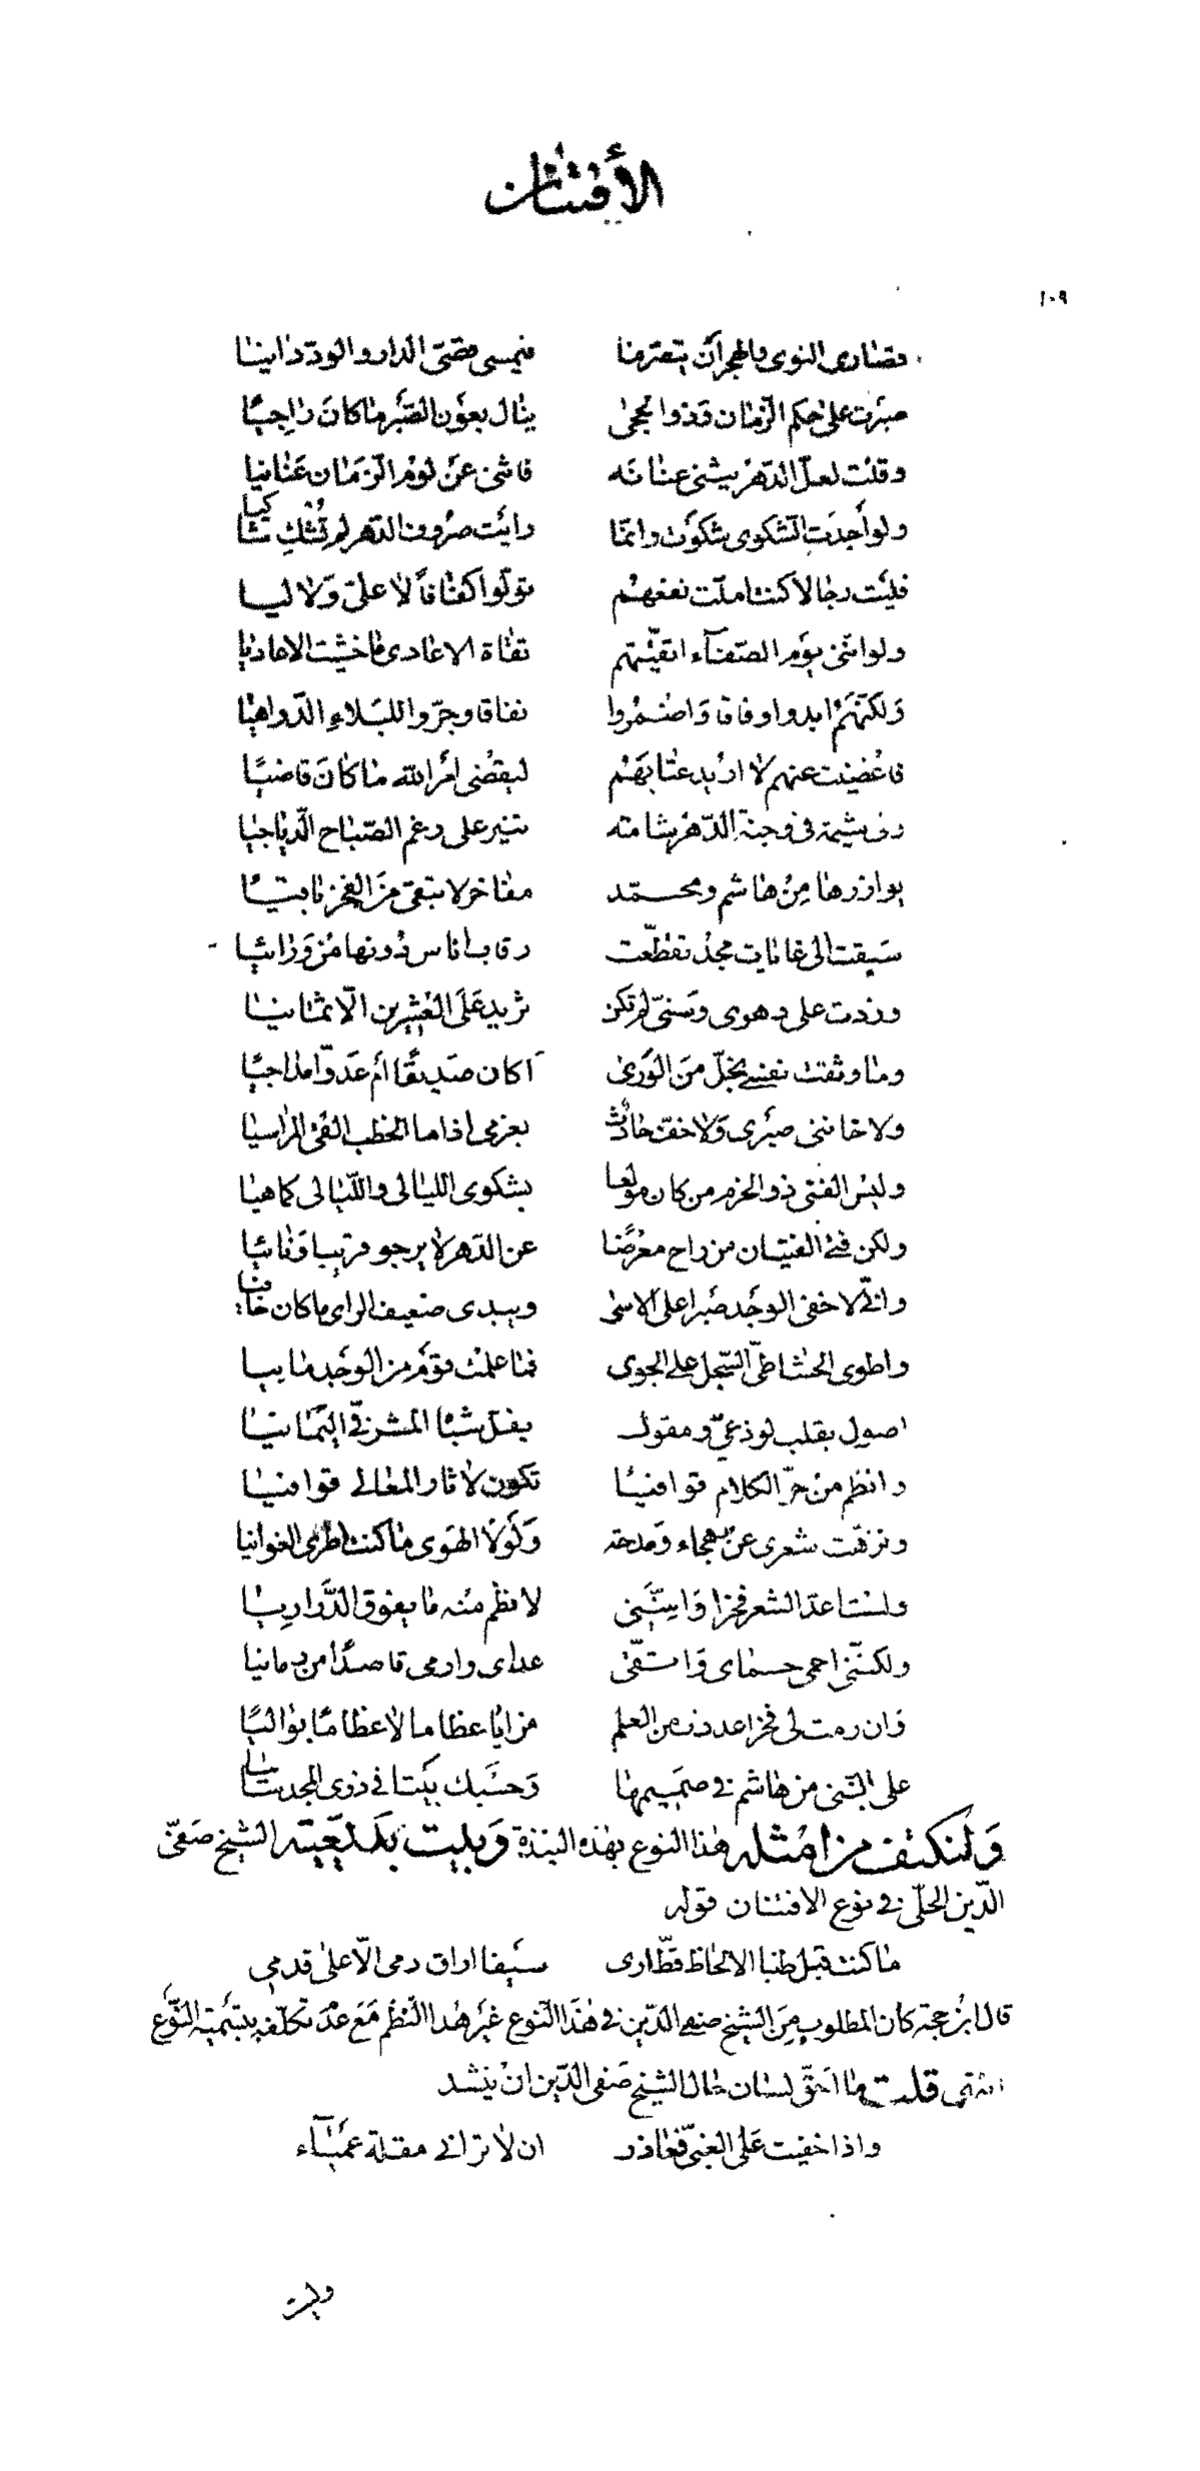 الأفتنان
١٠٩
قصارى النوى والهجر أن يتصرما فيمسي مقتي الدار والود دانيا
صبرت على حكم الزمان وذو الحجى ينال بعون الصبر ما كان راجيًا
وقلت لعل الدهر يثني عنانه فاثنى عن لوم الزمان عنانيا
ولو أجدت الشكوى شكوت وانما رايت صروف الدهر لم تشك شاكيا
فليت رجالا كنت املت نفعهم تولوا كفافًا لا عليّ ولا ليا
ولو انني يوم الصفآء اتقيتهم تقاة الاعادي ما خشيت الاعاديا
ولكنهم ابدوا وفاقا واضمروا نفاقا وجروا للبلاء الدواهيا
فاغضيت عنهم لا اريد عتابهم ليقضى امر الله ما كان قاضيًا
وبي شيمة في وجنة الدهر شامة تنير على رغم الصباح الدياجيا
يوازرها من هاشم ومحمد مفاخر لا تبقى من الفخر باقيًا
سبقت الى غايات مجد تقطعت رقاب اناس دونها من ورائيا
وزدت على دهري وسني لم تكن تزيد على العشرين الا ثمانيا
وما وثقت نفسي بخل من الورى أكان صديقًا أم عدوا مداجيًا
ولا خانني صبري ولا خفت حادث بعزمي اذا ما الخطب القى المراسيا
وليس الفتى ذو الحزم من كان مولعا بشكوى الليالي والليالي كما هيا
ولكن فتى الفتيان من راح معرضًا عن الدهر لا يرجو قريبا ونائيا
واني لاخفي الوجد صبرا على الاسى ويبدي ضعيف الراي ما كان خافيا
واطوي الحشا طي السجل على الجوى فما علمت قوم من الوجد ما بيا
اصول بقلب لوذعي ومقول يفل شبا المشرفي اليمانيا
وانظم من حر الكلام قوافيًا تكون لاثار المعالي قوافيا
ونزهت شعري عن هجاء ومدحة ولولا الهوى ما كنت اطري الغوانيا
ولست اعد الشعر فخرا وانني لانظم منه ما يفوق الدراريا
ولكنني احمي حماي واتقي عداي وارمي قاصدًا من رمانيا
وان رمت لي فخرا عددت من العلى مزايا عظاما لا عظامًا بواليًا
على انني من هاشم في صميمها وحسبك بيتا في ذوي المجد تاليا
ولنكتف من امثله هذا النوع بهذه النبذة وبيت بديعية الشيخ صفيّ
الدين الحلي في نوع الافتنان قوله
ما كنت قبل ظبا الالحاظ قط ارى سيفا اراق دمي الا على قدمي
قال ابن حجة كان المطلوب من الشيخ صفي الدين في هذا النوع غير هذا النظم مع عدم تكلفه بتسمية النوع
انتهى قلت ما احق لسان حال الشيخ صفي الدين ان ينشد
واذا خفيت على الغبي فعاذر ان لا تراني مقلة عميآء
وبيت